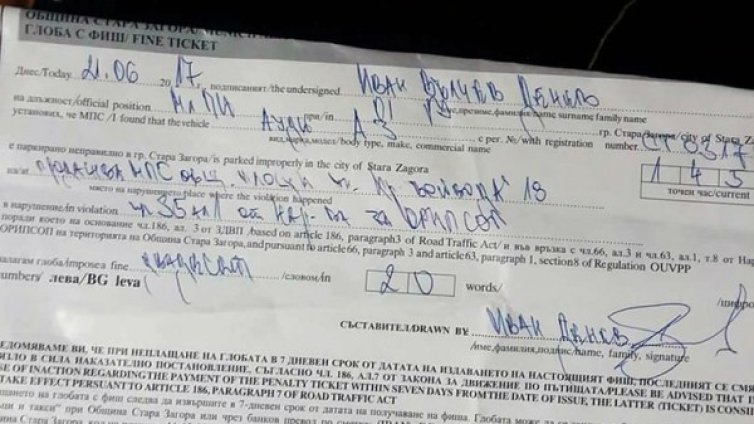 ОБЩИНА СТАРА ЗАГОРА/MUNICI
ГЛОБА С ФИШ/ FINE TICKET
Днес/Today 21.06 2017г., подписаният/the undersigned Иван Вълчев Денев
на длъжност/official position Мл ПИ при/in Р1 РУ име, презиме, фамилия/name surname family name
установих, че МПС /I found that the vehicle Ауди А3 гр. Стара Загора/city of Stara Za
вид, марка, модел/body type, make, commercial name с рег. №/with registration number. СТ 8317
е паркирано неправилно в гр. Стара Загора/is parked improperly in the city of Stara Zagora 1 4 5
на/at продажба МПС общ. площи ул. Хр. Войвода 18 точен час/current
място на нарушението/place where the violation happened
в нарушение/in violation чл 35 ал 1 от Нар-ба за ОРИПСОП
поради което на основание чл.186, ал. 3 от ЗДВП /based on article 186, paragraph3 of Road Traffic Act/ и във връзка с чл.66, ал.3 и чл.63, ал.1, т.8 от Нар
ОРИПСОП на територията на Община Стара Загора,and pursuant to article66, paragraph 3 and article63, paragraph 1, section8 of Regulation OUVPP
налагам глоба/imposea fine двадесет /словом/in 2 0 words/ /цифро
numbers/ лева/BG leva
СЪСТАВИТЕЛ/DRAWN BY Иван Денев
/име,фамилия,подпис/name, family, signature
ЕДОМЯВАМЕ ВИ, ЧЕ ПРИ НЕПЛАЩАНЕ НА ГЛОБАТА В 7 ДНЕВЕН СРОК ОТ ДАТАТА НА ИЗДАВАНЕТО НА НАСТОЯЩИЯТ ФИШ, ПОСЛЕДНИЯТ СЕ СМЯ
ЯЗЛО В СИЛА НАКАЗАТЕЛНО ПОСТАНОВЛЕНИЕ, СЪГЛАСНО ЧЛ. 186, АЛ.7 ОТ ЗАКОНА ЗА ДВИЖЕНИЕ ПО ПЪТИЩАТА/PLEASE BE ADVISED THAT I
SE OF INACTION REGARDING THE PAYMENT OF THE PENALTY TICKET WITHIN SEVEN DAYS FROM THE DATE OF ISSUE, THE LATTER (TICKET) IS CONSID
TAKE EFFECT PERSUANT TO ARTICLE 186, PARAGRAPH 7 OF ROAD TRAFFIC ACT
щането на глобата с фиш следва да извършите в 7-дневен срок от датата на получаване на фиша.